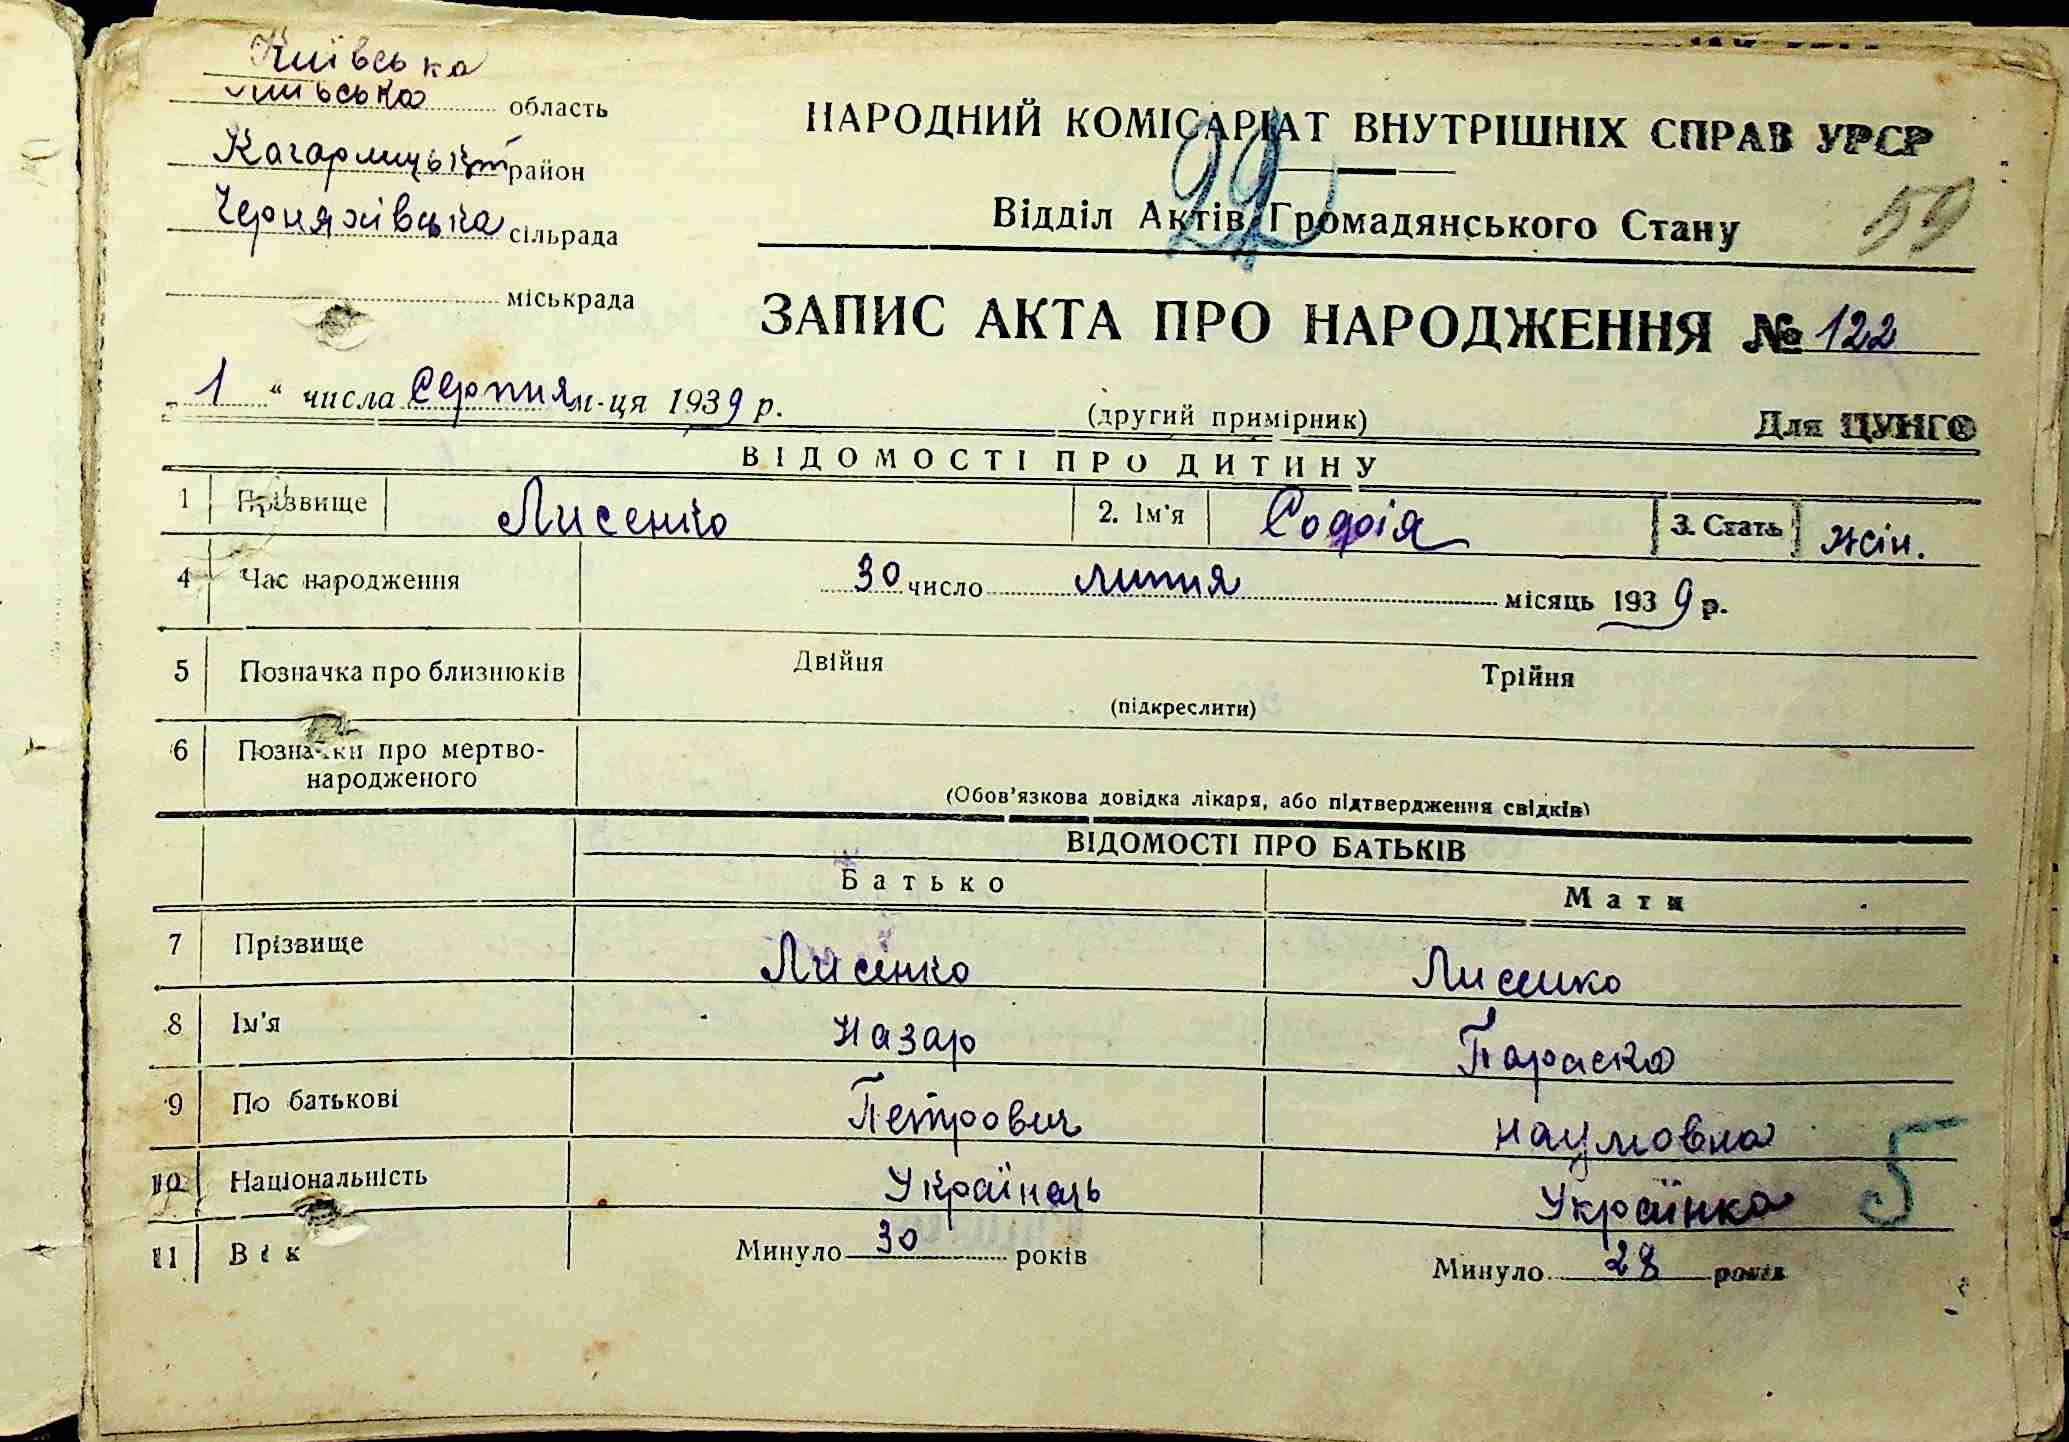 Київська
Київська область
Кагарлицький район
Черняхівська сільрада
міськрада
НАРОДНИЙ КОМІСАРІАТ ВНУТРІШНІХ СПРАВ УРСР
22
Відділ Актів Громадянського Стану
59
ЗАПИС АКТА ПРО НАРОДЖЕННЯ № 122
1 " числа Серпня м-ця 1939 р.
(другий примірник)
Для ЦУНГО
ВІДОМОСТІ ПРО ДИТИНУ
1 Прізвище Лисенко 2. Ім'я Софія 3. Стать жін.
4 Час народження 30 число липня місяць 1939 р.
5 Позначка про близнюків Двійня Трійня
(підкреслити)
6 Позначки про мертво-
народженого
(Обов'язкова довідка лікаря, або підтвердження свідків)
ВІДОМОСТІ ПРО БАТЬКІВ
Батько Мати
7 Прізвище Лисенко Лисенко
8 Ім'я Назар Параска
9 По батькові Петрович Наумовна
10 Національність Українець Українка
5
11 Вік Минуло 30 років Минуло 28 років